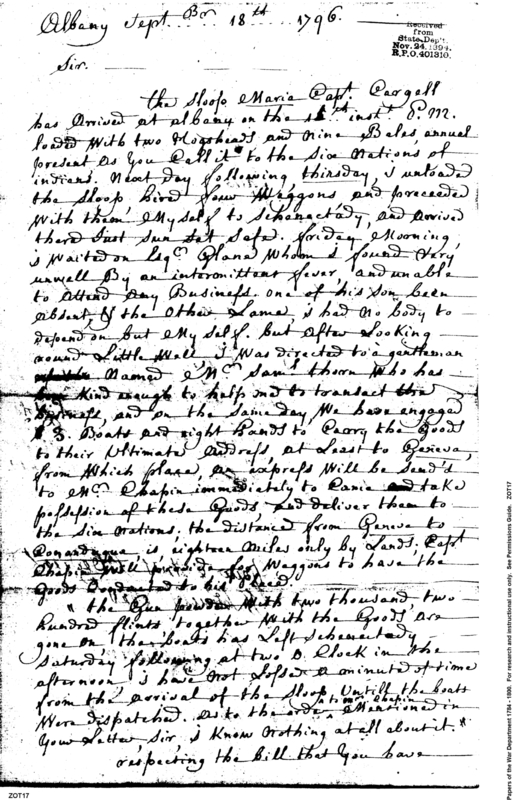 Albany Septbr 18th 1796.
Received
from
State Dep't.
Nov. 24, 1894.
R.P.O. 401310.
Sir.
the Sloop Maria Capt. Cargell
has Arrived at Albany on the inst. P.M.
loaded With two Hogsheads and Nine Bales, annual
present As You Call it to the Six Nations of
indians. Next day following thirsday, i unloaded
the Sloop hired four Waggons and preceeded
With them, Myself to Schonactady, and arrived
there Just Sun Set Safe. friday Morning,
i Waited on Esqr. Glane Whom i found Very
unwell By an intermittent fever, and unable
to Attend Any Business. one of his Son been
Absent, & the Other Lame, i had No body to
depend on but My Self. but After Looking
round Little While i Was directed to a gentleman
Named Mr. Saml. thorn Who has
Kind enough to help me to transact the
Business, and on the Same day, We have engaged
3. Boats and eight hands to Carry the Goods
to their Ultimate Address, at Least to Geneva,
from Which place, an express Will be Send's
to Mr. Chapin immediately to Canie and take
possession of these Goods, and deliver them to
the Six Nations; the distance from Geneva to
Conandaque, is eighteen Miles only by Lands; Capt
Chapin Will provide for Waggons to have the
Goods Conducted to his
" the Gun powder With two thousand, two
hundred flints together With the Goods, are
gone on the boats has Left Schenectady
Saturday following at two O Clock in the
afternoon i have Not Losse a minute of time
from the arrival of the Sloop Untill the boats
Were dispatched. As to the order Mentioned in
Your Letter Sir, i Know Nothing at all about it."
respecting the bill that You have
ZOT17
Papers of the War Department 1784 - 1800. For research and instructional use only. See Permissions Guide. ZOT17